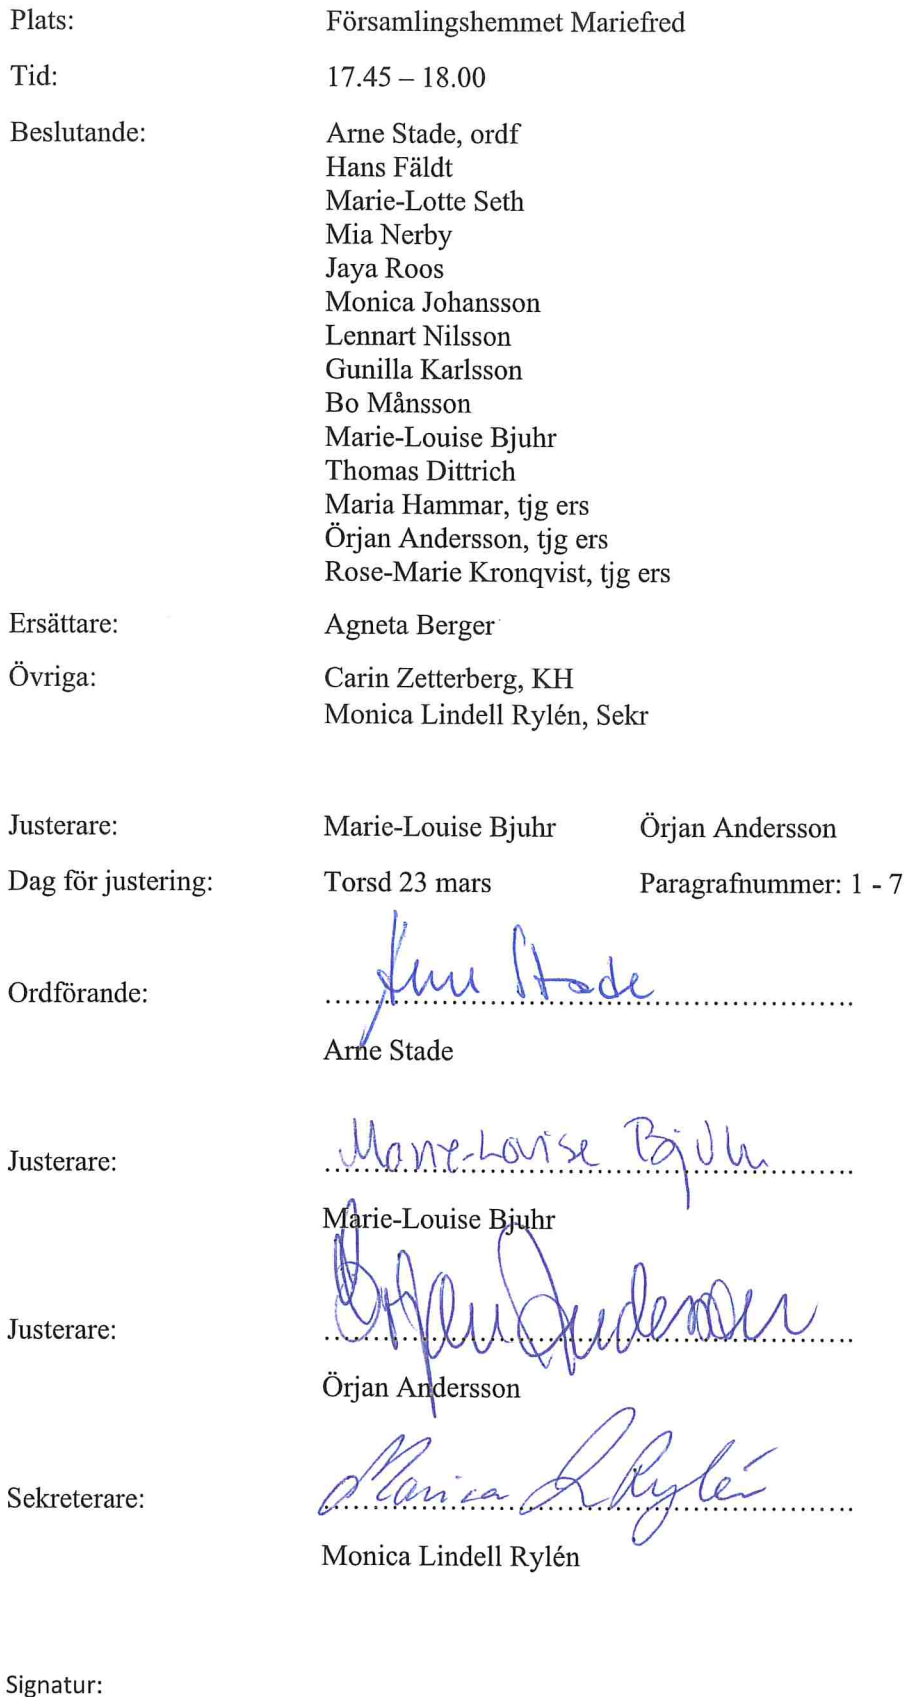 Plats: Församlingshemmet Mariefred
Tid: 17.45 – 18.00
Beslutande: Arne Stade, ordf
Hans Fäldt
Marie-Lotte Seth
Mia Nerby
Jaya Roos
Monica Johansson
Lennart Nilsson
Gunilla Karlsson
Bo Månsson
Marie-Louise Bjuhr
Thomas Dittrich
Maria Hammar, tjg ers
Örjan Andersson, tjg ers
Rose-Marie Kronqvist, tjg ers
Ersättare: Agneta Berger
Övriga: Carin Zetterberg, KH
Monica Lindell Rylén, Sekr
Justerare: Marie-Louise Bjuhr Örjan Andersson
Dag för justering: Torsd 23 mars Paragrafnummer: 1 - 7
Arne Stade
Ordförande:
Arne Stade
Marie-Louise Bjuhr
Justerare:
Marie-Louise Bjuhr
Örjan Andersson
Justerare:
Örjan Andersson
Monica L Rylén
Sekreterare:
Monica Lindell Rylén
Signatur: